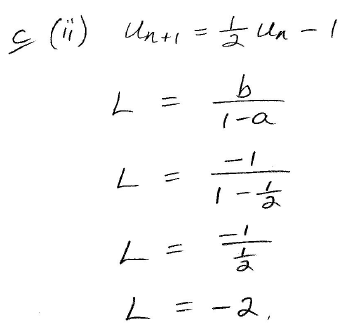 c (ii) Uₙ₊₁ = ½ Uₙ - 1
L = b / 1-a
L = -1 / 1-½
L = -1 / ½
L = -2.